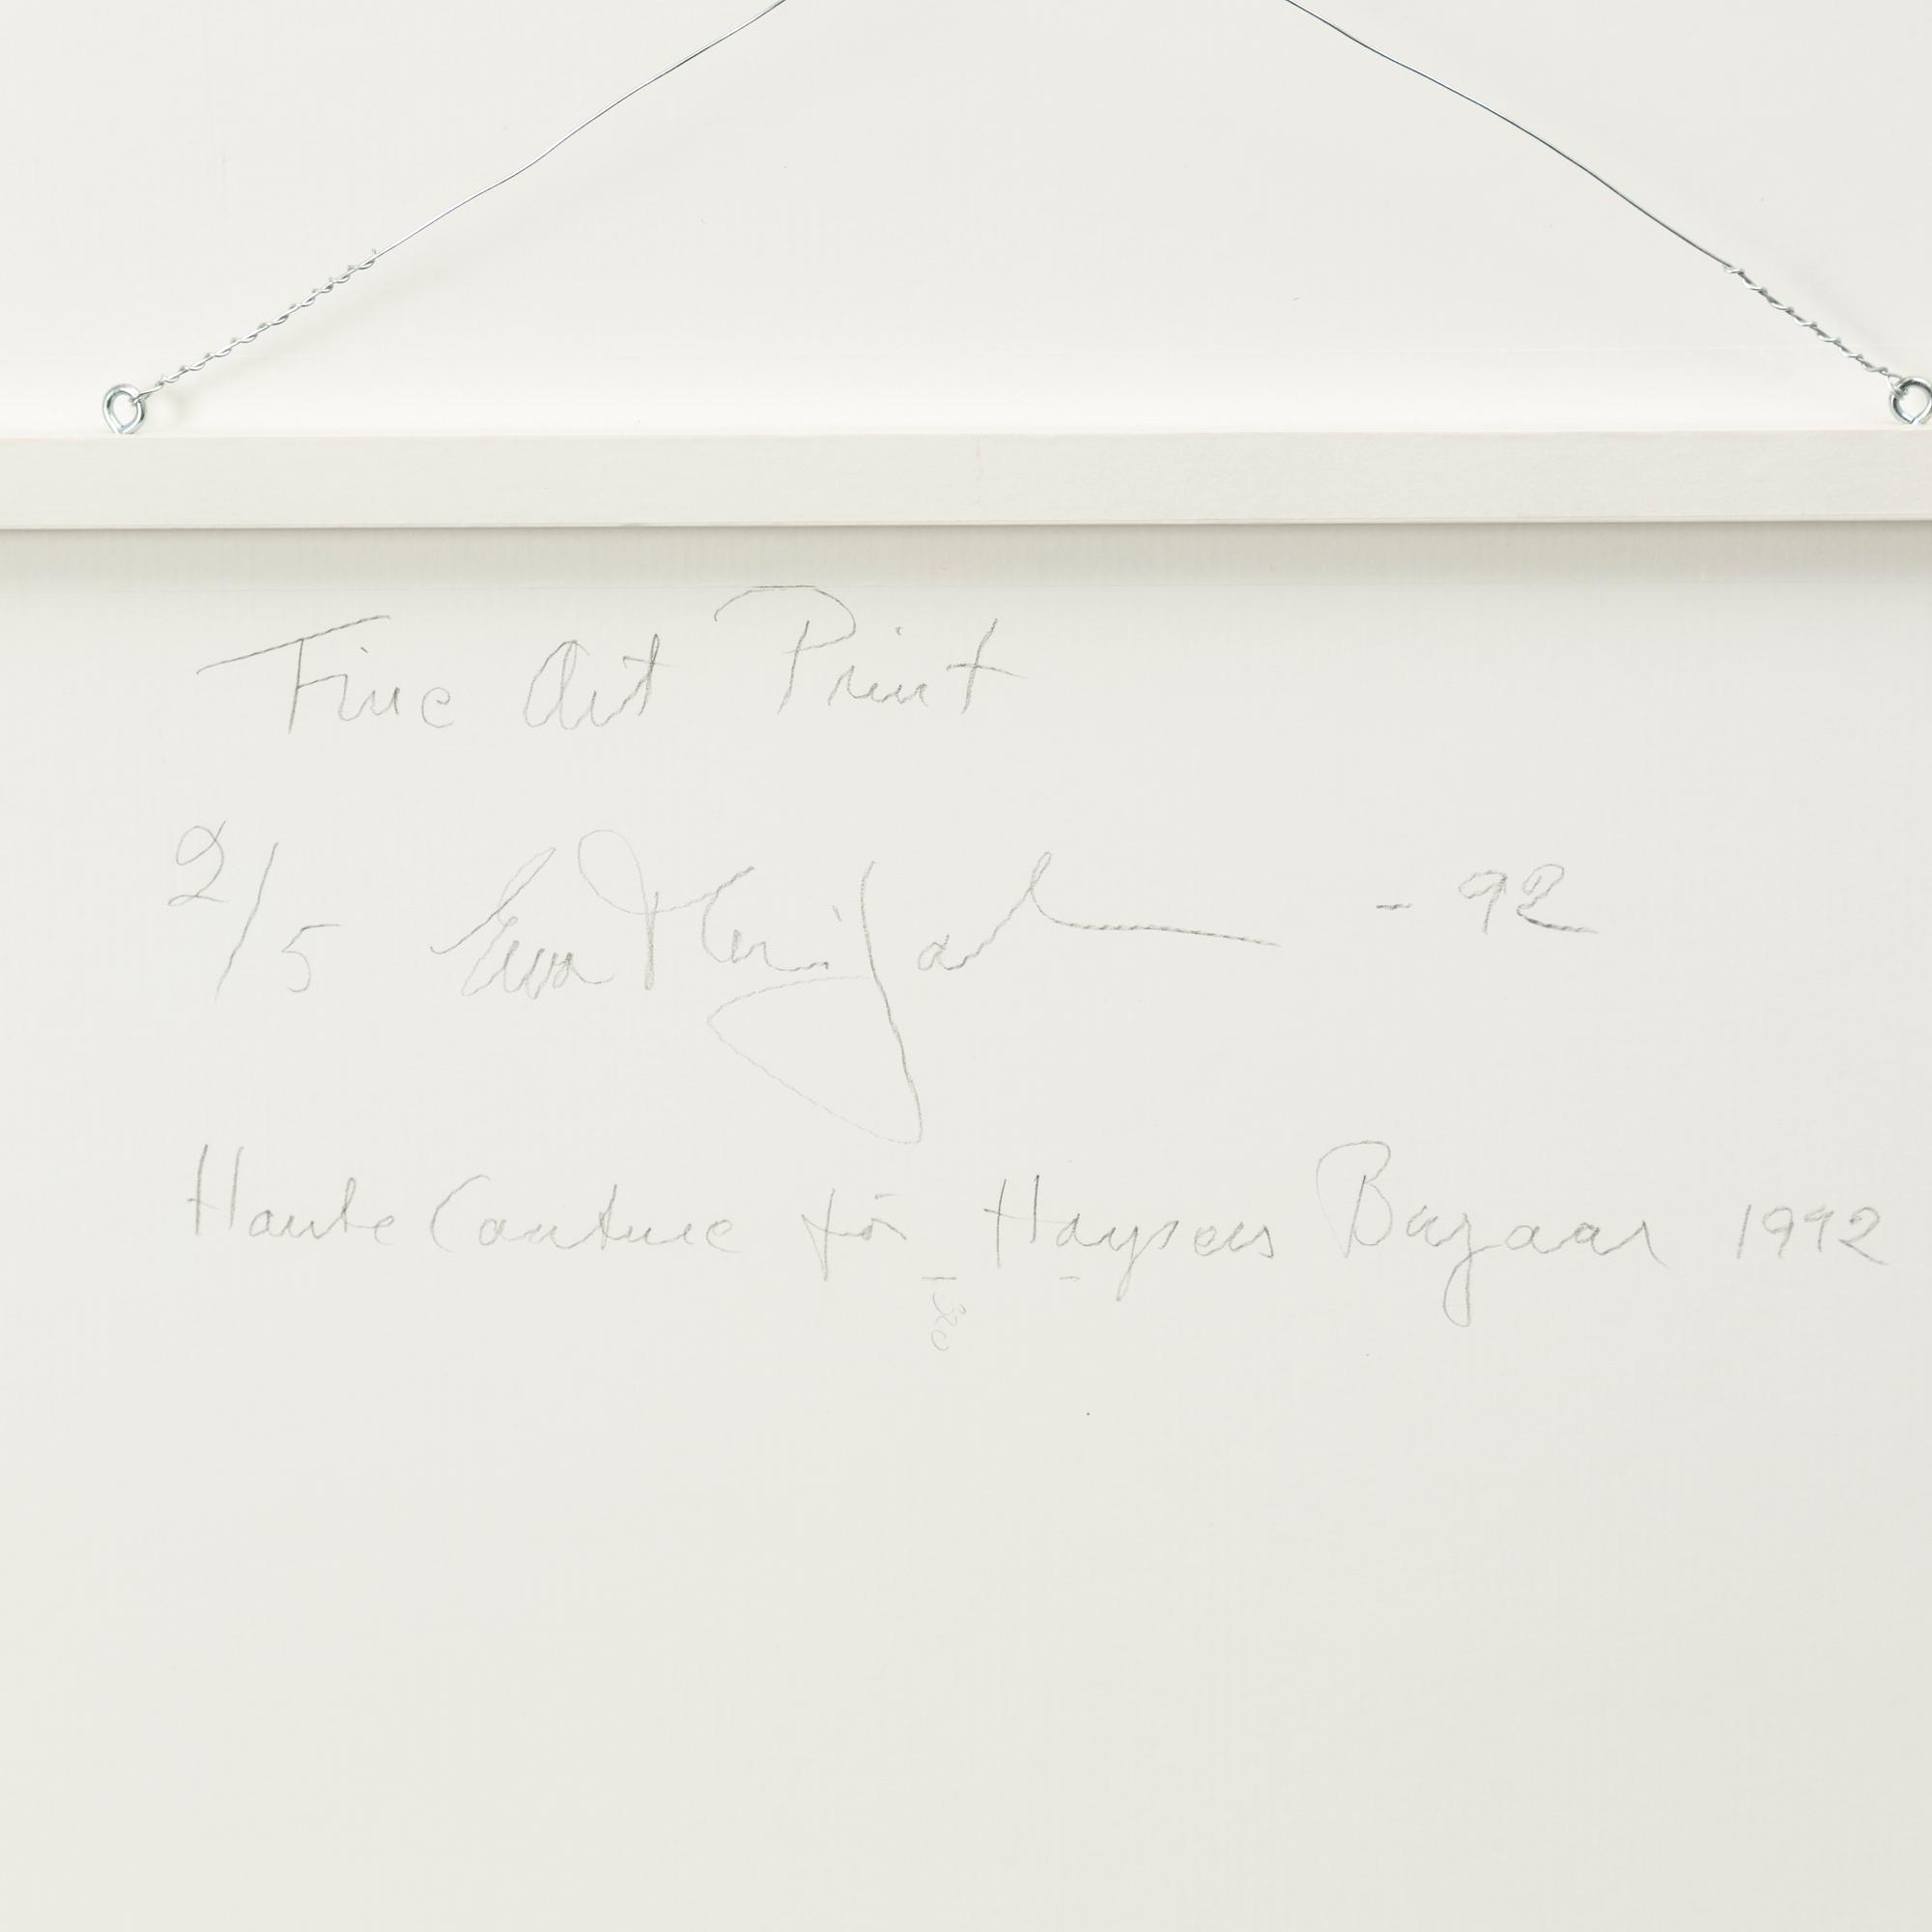 Fine Art Print
2/5 Ewa Marie Rundquist - 92
Haute Couture för Haypers Bazaar 1992